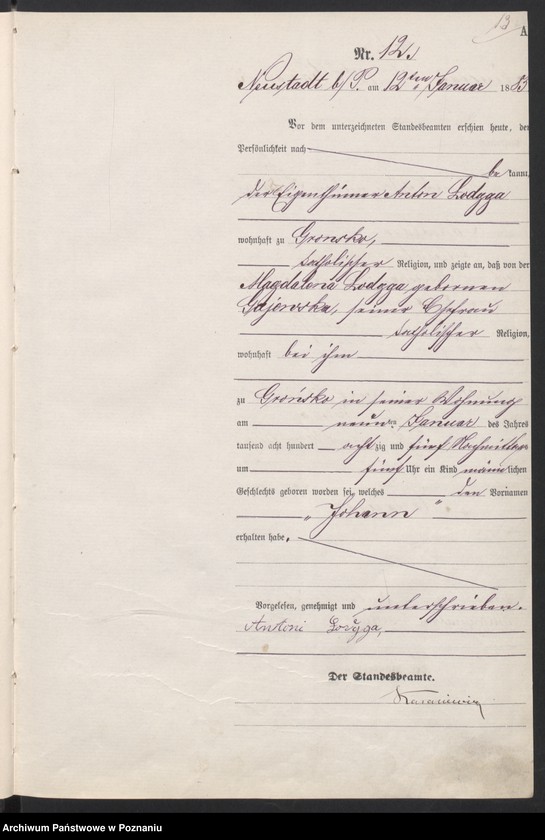 13
A
Nr. 12.
Neustadt b/P. am 12ten Januar 1885
Vor dem unterzeichneten Standesbeamten erschien heute, der
Persönlichkeit nach
bekannt,
der Eigenthümer Anton Lodyga
wohnhaft zu Gronsko,
katholischer Religion, und zeigte an, daß von der
Magdalena Lodyga gebornen
Gajewska, seiner Ehefrau
katholischer Religion,
wohnhaft bei ihm
zu Grońsko in seiner Wohnung
am neunten Januar des Jahres
tausend acht hundert achtzig und fünf Nachmittags
um fünf Uhr ein Kind männlichen
Geschlechts geboren worden sei, welches den Vornamen
"Johann"
erhalten habe.
Vorgelesen, genehmigt und unterschrieben.
Antoni Lodyga,
Der Standesbeamte.
Archiwum Państwowe w Poznaniu